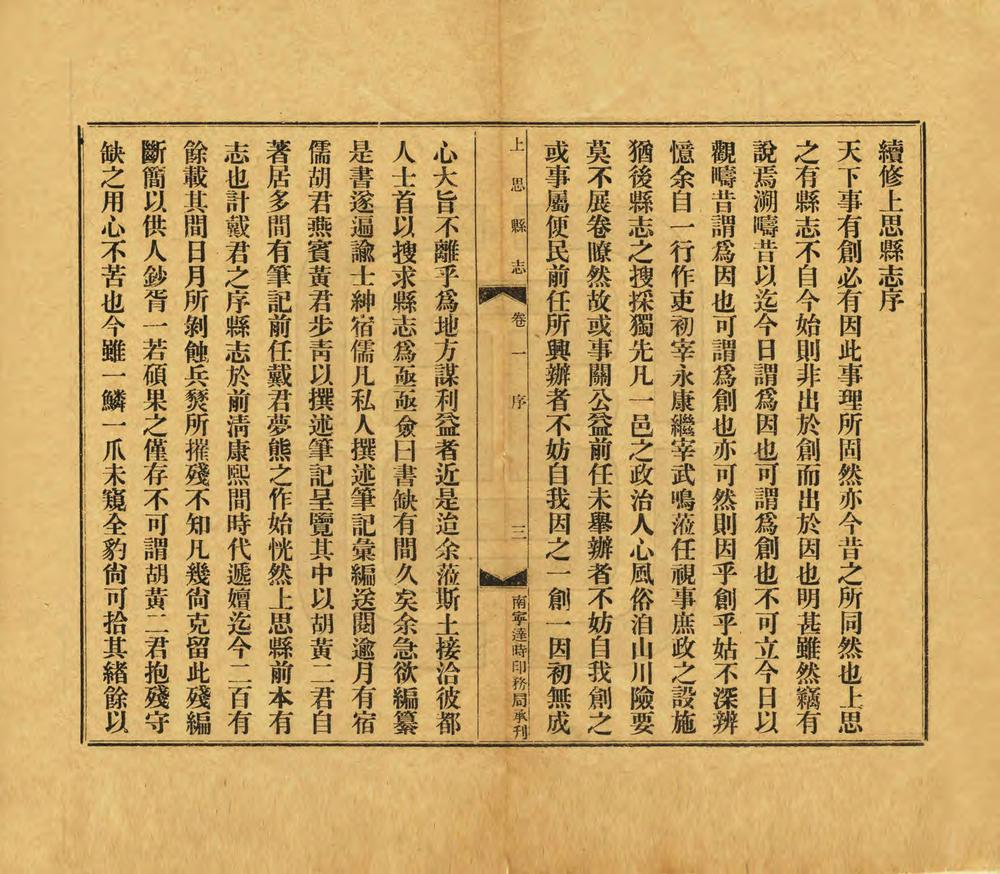 續修上思縣志序
天下事有創必有因此事理所固然亦今昔之所同然也上思
之有縣志不自今始則非出於創而出於因也明甚雖然竊有
說焉溯疇昔以迄今日謂爲因也可謂爲創也不可立今日以
觀疇昔謂爲因也可謂爲創也亦可然則因乎創乎姑不深辨
憶余自一行作吏初宰永康繼宰武鳴蒞任視事庶政之設施
猶後縣志之搜採獨先凡一邑之政治人心風俗洎山川險要
莫不展卷瞭然故或事關公益前任未舉辦者不妨自我創之
或事屬便民前任所興辦者不妨自我因之一創一因初無成
上思縣志 卷一 序 三 南寧達時印務局承刋
心大旨不離乎爲地方謀利益者近是迨余蒞斯土接洽彼都
人士首以搜求縣志爲亟亟僉曰書缺有間久矣余急欲編纂
是書遂遍諭士紳宿儒凡私人撰述筆記彙編送閱逾月有宿
儒胡君燕賓黃君步靑以撰述筆記呈覽其中以胡黃二君自
著居多間有筆記前任戴君夢熊之作始恍然上思縣前本有
志也計戴君之序縣志於前淸康熙間時代遞嬗迄今二百有
餘載其間日月所剝蝕兵燹所摧殘不知凡幾尙克留此殘編
斷簡以供人鈔胥一若碩果之僅存不可謂胡黃二君抱殘守
缺之用心不苦也今雖一鱗一爪未窺全豹尙可拾其緖餘以